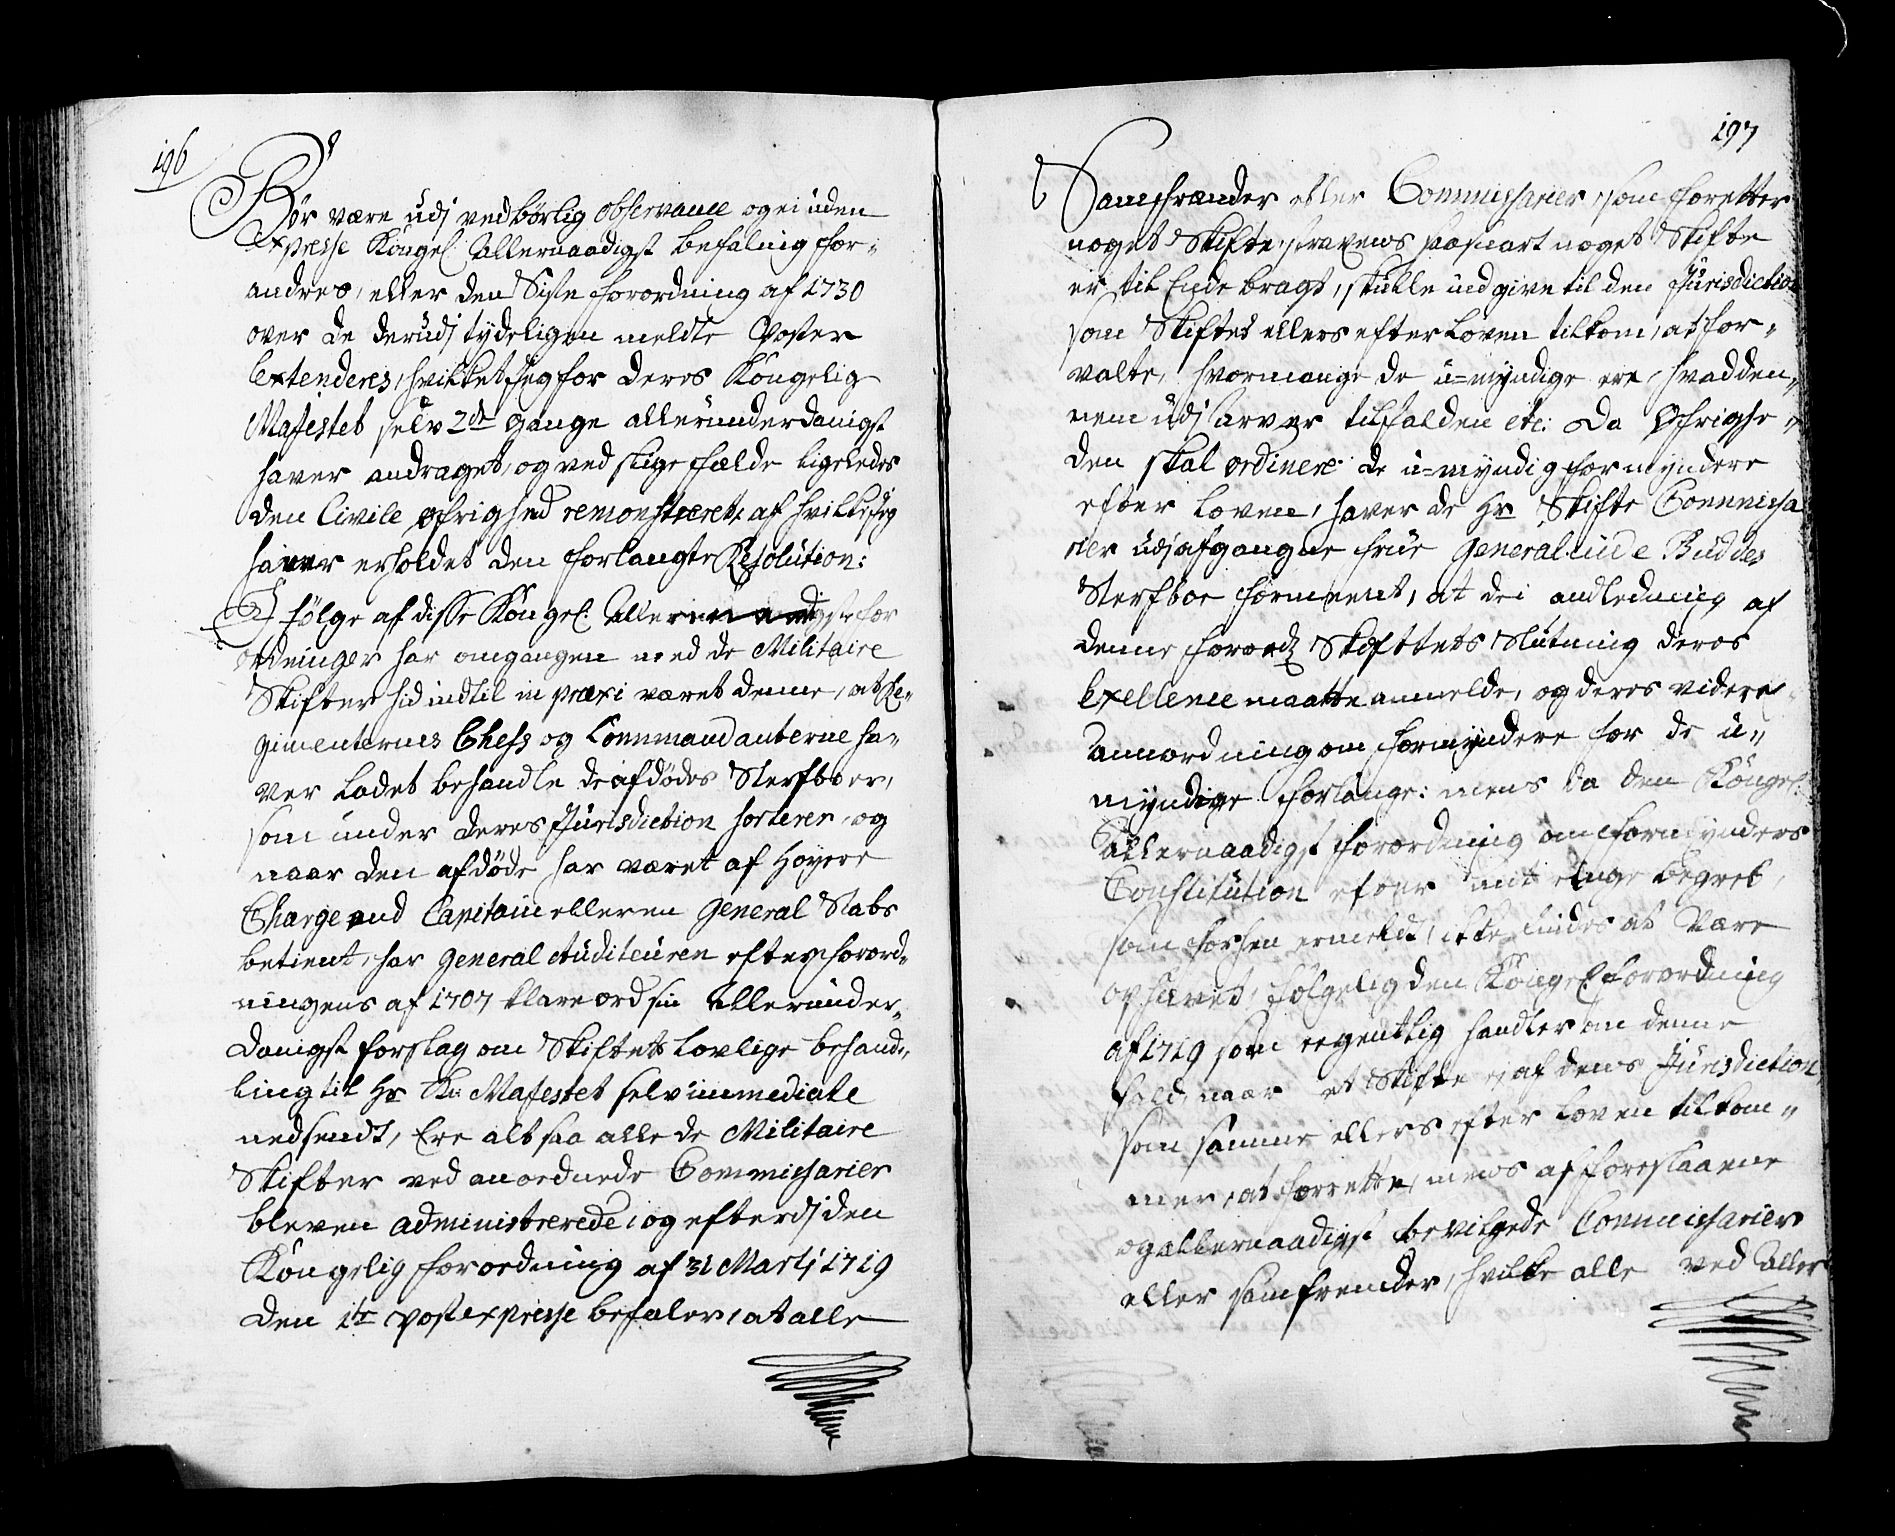 196
Bör være udj vedbörlig observance og ei uden
Expresse Kongel: Allernaadigst befaling for-
andres, eller den Siste forordning af 1730
over de derudj tydeligen meldte Poster
Extenderes, hvilket Jeg for Deres Kongelig
Majestet selv 2de gange allerunderdanigst
haver andraget, og ved slige fælde ligeledes
den Civile øfrighed remonstreret, af hvilke Jeg
haver erholdet den forlangte Resolution:
I fölge af disse Kongel: Allernaadigste for
ordninger har omgangen med de Militaire
Skifter hid indtil in praxi været denne, at Re-
gimenternes Chefs og Commandanterne ha-
ver ladet behandle de afdödes Sterfboer,
som under deres Jurisdiction sorterer, og
naar den afdöde har været af Höyere
Charge end Capitain eller en General Stabs
betient, har General Auditeuren efter forord-
ningens af 1707 klare ord sin Allerunder-
danigst forslag om Skiftets lovlige behand-
ling til Hs Kr: Majestet selv immediate
nedsendt, Ere alt saa alle de Militaire
Skifter ved anordnede Commissarier
bleven administrerede, og efterdj den
Kongelig forordning af 31 Martj 1719
den 1te post expresse befaler, at alle
197
Samfrænder eller Commissarier, som foretter
noget Skifte, straxens saasnart noget Skifte
er til Ende bragt, skulle indgive til den Jurisdiction
som Skiftet ellers efter Loven tilkom, at for-
valte, hvormange de u-myndige ere, hvad den-
nem udj arv er tilfalden etc: Da Øfrighe-
den skal ordinere de u-myndig formyndere
efter Loven, haver de Hr Skifte Commissa
rier udj afgangne frue General Budde
Sterfboe forment, at dei andledning af
denne forord: Skifttets Slutning deres
Exellence maatte anmelde, og deres videre
anordning om formyndere for de u-
myndige forlange: mens da den Kongel:
Allernaadigst forordning om formynders
Constitution efter mit ringe begreb,
som forhen ermeldt, ikke findes at være
ophævet, fölgelig den Kongel: forordning
af 1719 som egentlig handler om denne
fald, naar et Skifte ej af dens Jurisdiction,
som samme ellers efter Loven tilkom-
mer, at forrette, mens af foreslaaene
og allernaadigst bevilgede Commissarier
eller samfrender, hvilke alle ved Aller